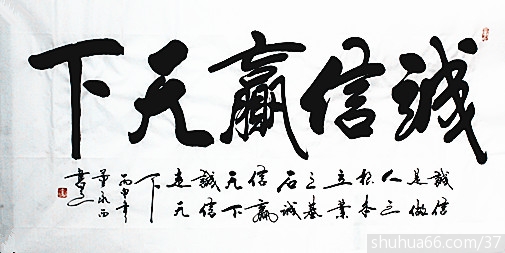 誠信贏天下
誠信
是做
人之
根本
立業
之基
石誠
信贏
天下
誠信
走天
下
丙申年
shuhua66.com/37